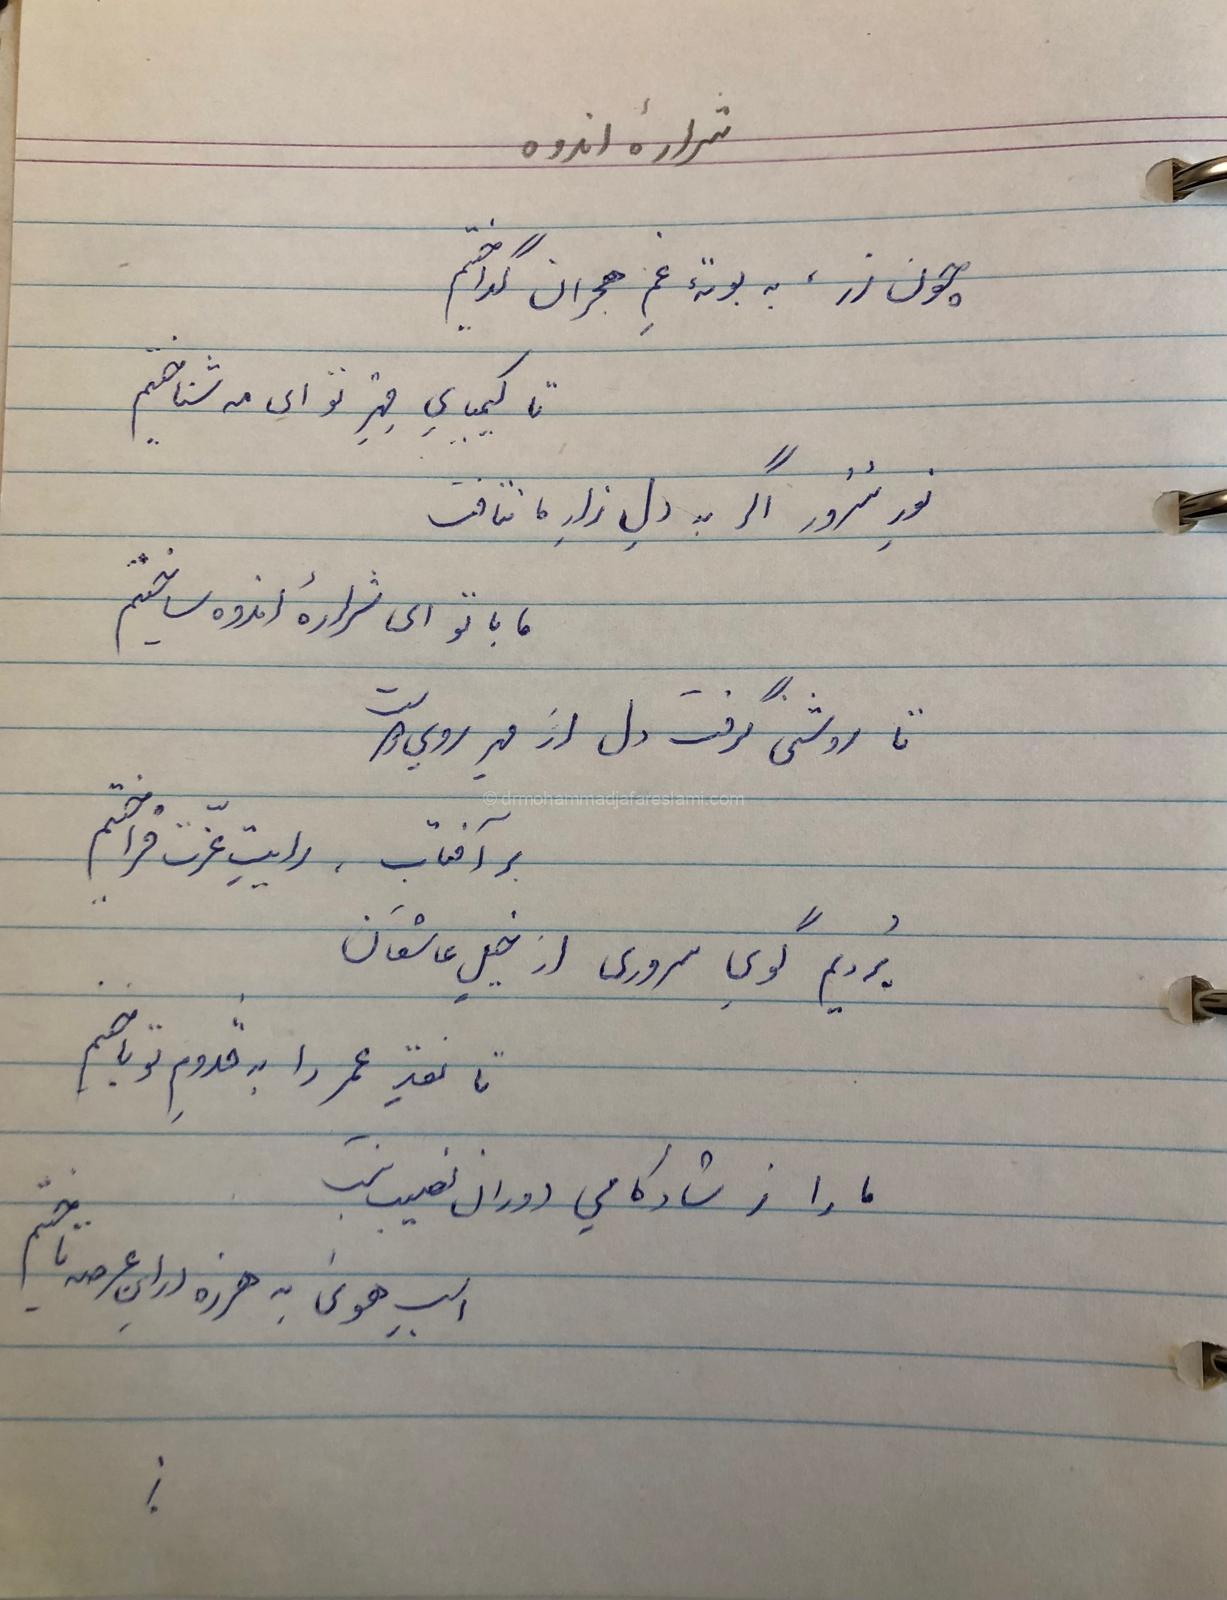 شرارهٔ اندوه
چون زر، به بوتهٔ غمِ هجران گداختیم
تا کیمیایِ مِهرِ تو ای مه شناختیم
نورِ سُرور اگر به دلِ زارِ ما نتافت
ما با تو ای شرارهٔ اندوه ساختیم
تا روشنی گرفت دل از مهرِ رویِ دوست
بر آفتاب، رایتِ عزّت فراختیم
بُردیم گویِ سروری از خیلِ عاشقان
تا نقدِ عمر را به قدومِ تو باختیم
ما را ز شادکامیِ دوران نصیب نیست
اسبِ هویٰ به هرزه در این عرصه تاختیم
© drmohammadjafareslami.com